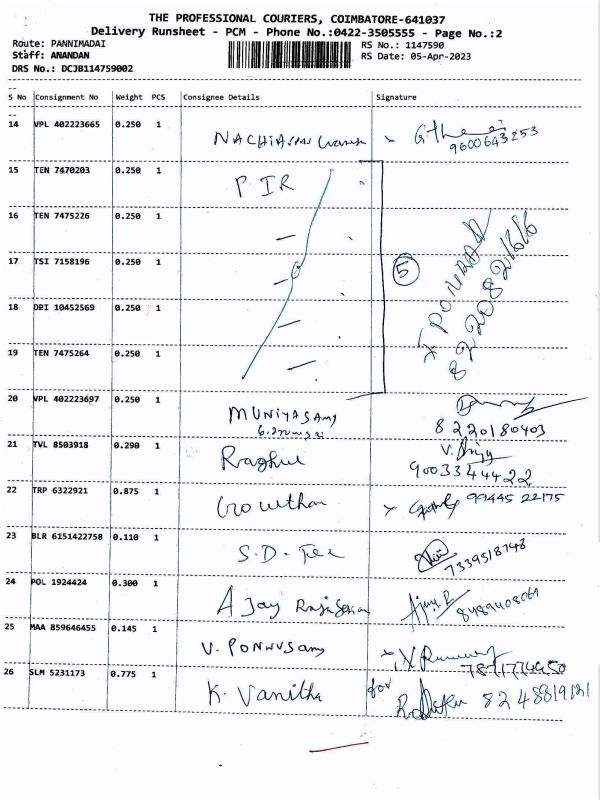 THE PROFESSIONAL COURIERS, COIMBATORE-641037
Delivery Runsheet - PCM - Phone No.:0422-3505555 - Page No.:2
Route: PANNIMADAI
Staff: ANANDAN
DRS No.: DCJB114759002
RS No.: 1147590
RS Date: 05-Apr-2023
S No Consignment No Weight PCS Consignee Details Signature
14 VPL 402223665 0.250 1
9600643253
15 TEN 7470203 0.250 1 P. IR
16 TEN 7475226 0.250 1
17 TSI 7158196 0.250 1
5
X PONMADI
8220821616
18 DPI 10452569 0.250 1
19 TEN 7475264 0.250 1
20 VPL 402223697 0.250 1 MUNIYASAMY
8220180403
21 TVL 8503918 0.290 1 Raghul
9003344422
22 TRP 6322921 0.875 1 Gowtham
99445 22175
23 BLR 6151422758 0.110 1 S.D. Tex
7339518748
24 POL 1924424 0.300 1 Ajay Rajasekar
8489408069
25 MAA 859646455 0.145 1 V. PONNUSAMY
26 SLM 5231173 0.775 1 K. Vanitha for